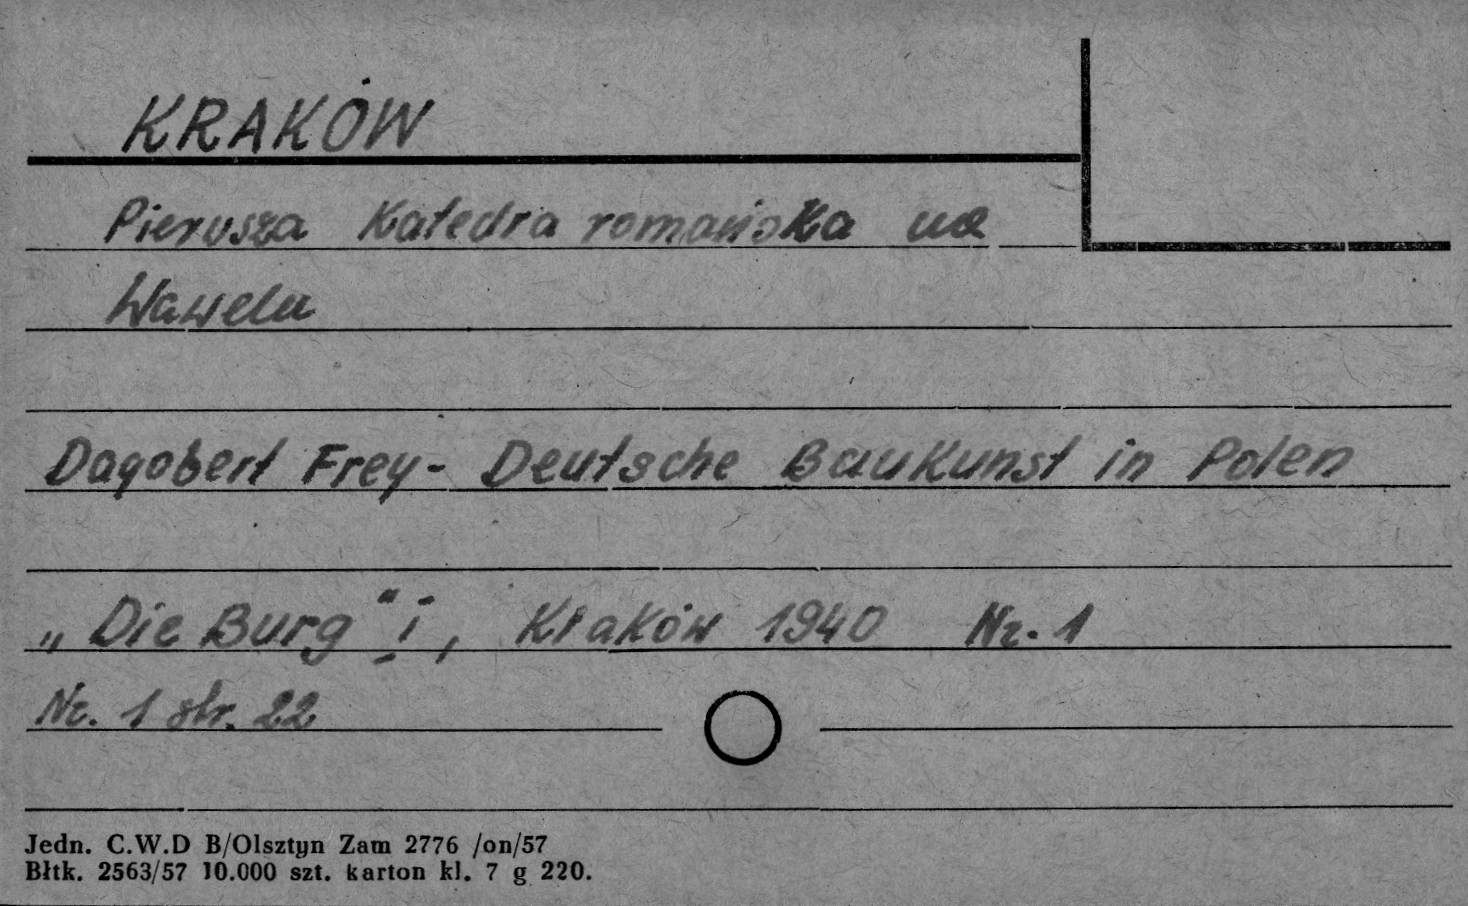 KRAKÓW
Pierwsza Katedra romańska na
Wawelu
Dagobert Frey- Deutsche Baukunst in Polen
„Die Burg" i, Kraków 1940 Nr. 1
Nr. 1 str. 22
Jedn. C.W.D B/Olsztyn Zam 2776 /on/57
Błtk. 2563/57 10.000 szt. karton kl. 7 g 220.